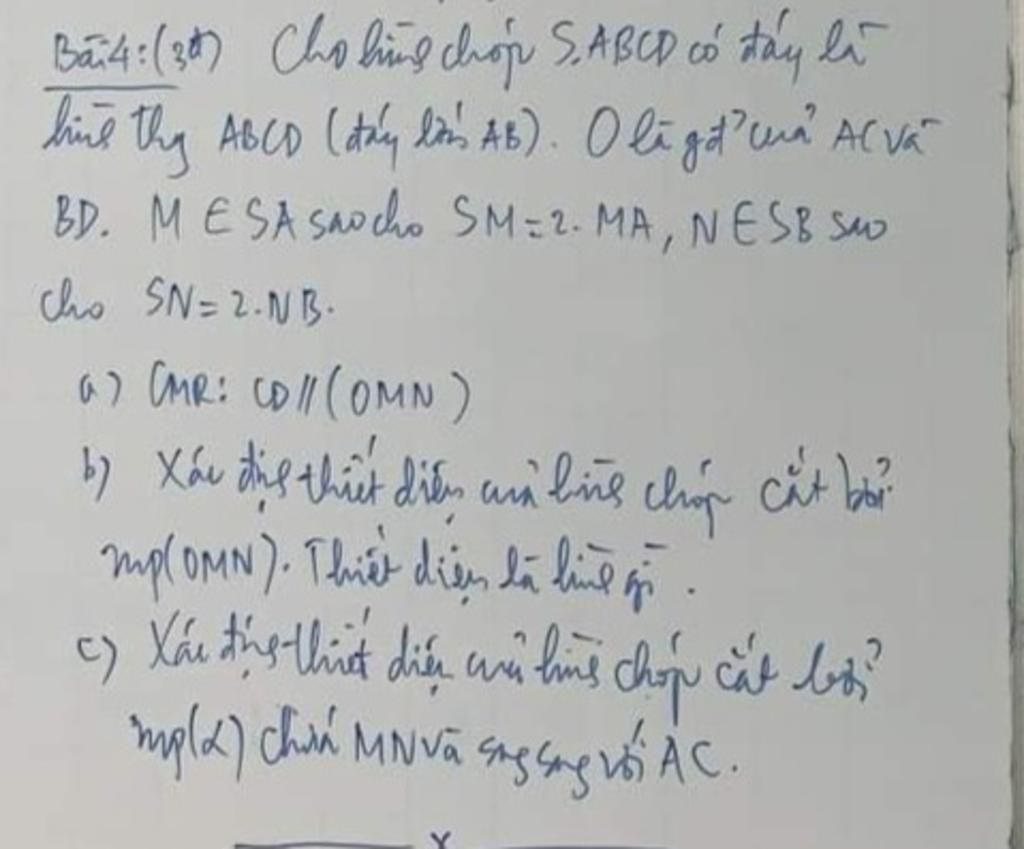 Bài 4: (3đ) Cho hình chóp S.ABCD có đáy là
hình thg ABCD (đáy lớn AB). O là gđ? của AC và
BD. M ∈ SA sao cho SM = 2. MA, N ∈ SB sao
cho SN = 2. NB.
a) CMR: CD // (OMN)
b) Xác định thiết diện của hình chóp cắt bởi
mp(OMN). Thiết diện là hình gì.
c) Xác định thiết diện của hình chóp cắt bởi
mp(α) chứa MN và sng sng với AC.